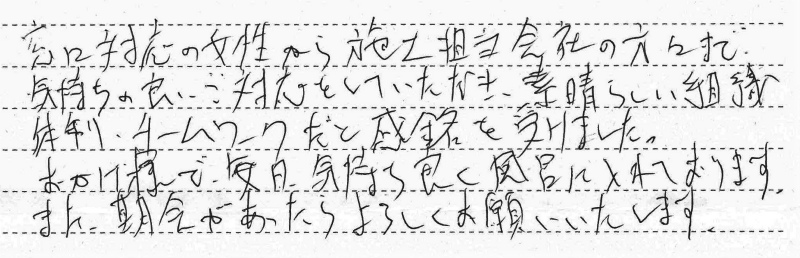 窓口対応の女性から施工担当会社の方々まで
気持ちの良いご対応をしていただき、素晴らしい組織
体制、チームワークだと感銘を受けました。
おかげ様で、毎日、気持ち良く風呂に入れております。
また、機会があったらよろしくお願いいたします。